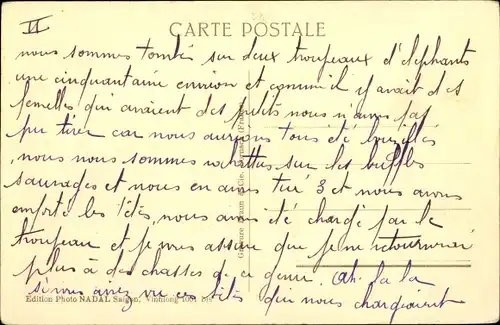 II
CARTE POSTALE
nous sommes tombés sur deux troupeaux d'elephants
une cinquantaine environ et comme il y avait des
femelles qui avaient des petits nous n'avons pas
pu tirer car nous aurions tous été
nous nous sommes rabattus sur les buffles
sauvages et nous en avons tué 3 et nous avons
emporté les têtes, nous avons été chargé par le
troupeau et je vous assure que je ne retournerai
plus à des chasses de ce genre. Ah. la la
si vous aviez vu ces bêtes qui nous chargeaient
Édition Photo NADAL Saigon,